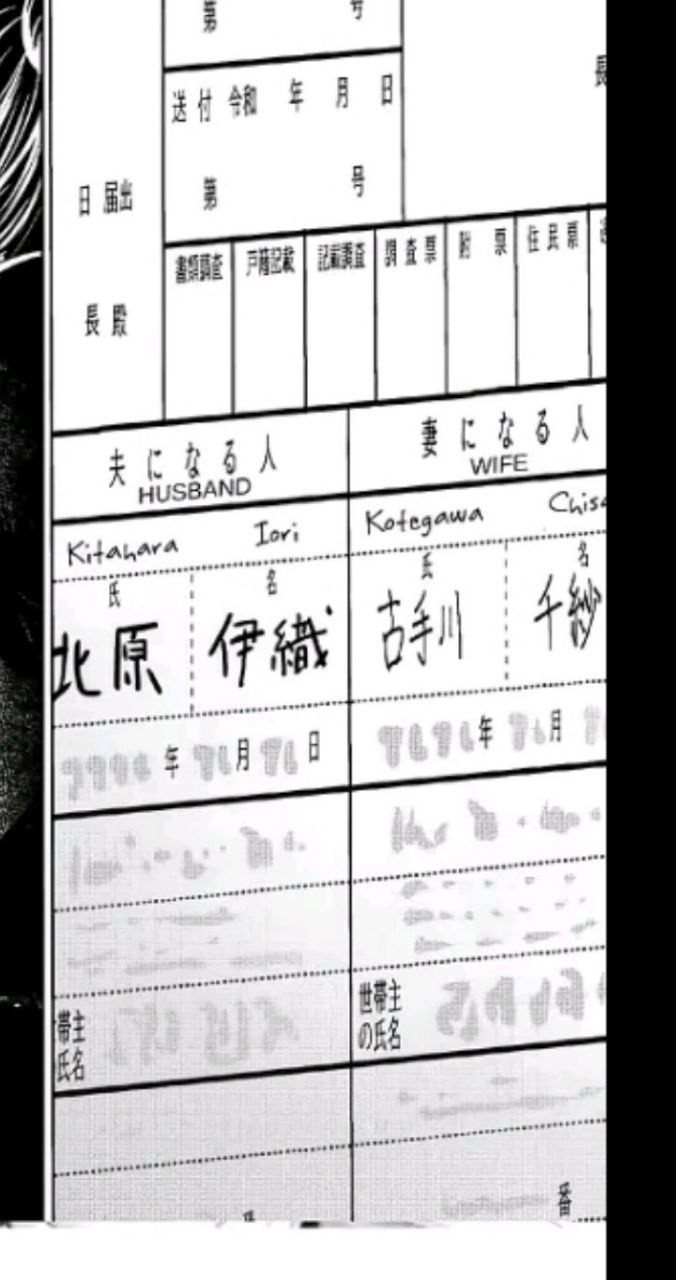 第 号
送付 令和 年 月 日
長
日 届出
第 号
書類調査 戸籍記載 記載調査 調査票 附票 住民票
長 殿
夫になる人 妻になる人
HUSBAND WIFE
Kitahara Iori Kotegawa
氏 名 氏 名
北原 伊織 古手川 千紗
年 月 日 年 月
帯主 世帯主
氏名 の氏名
番